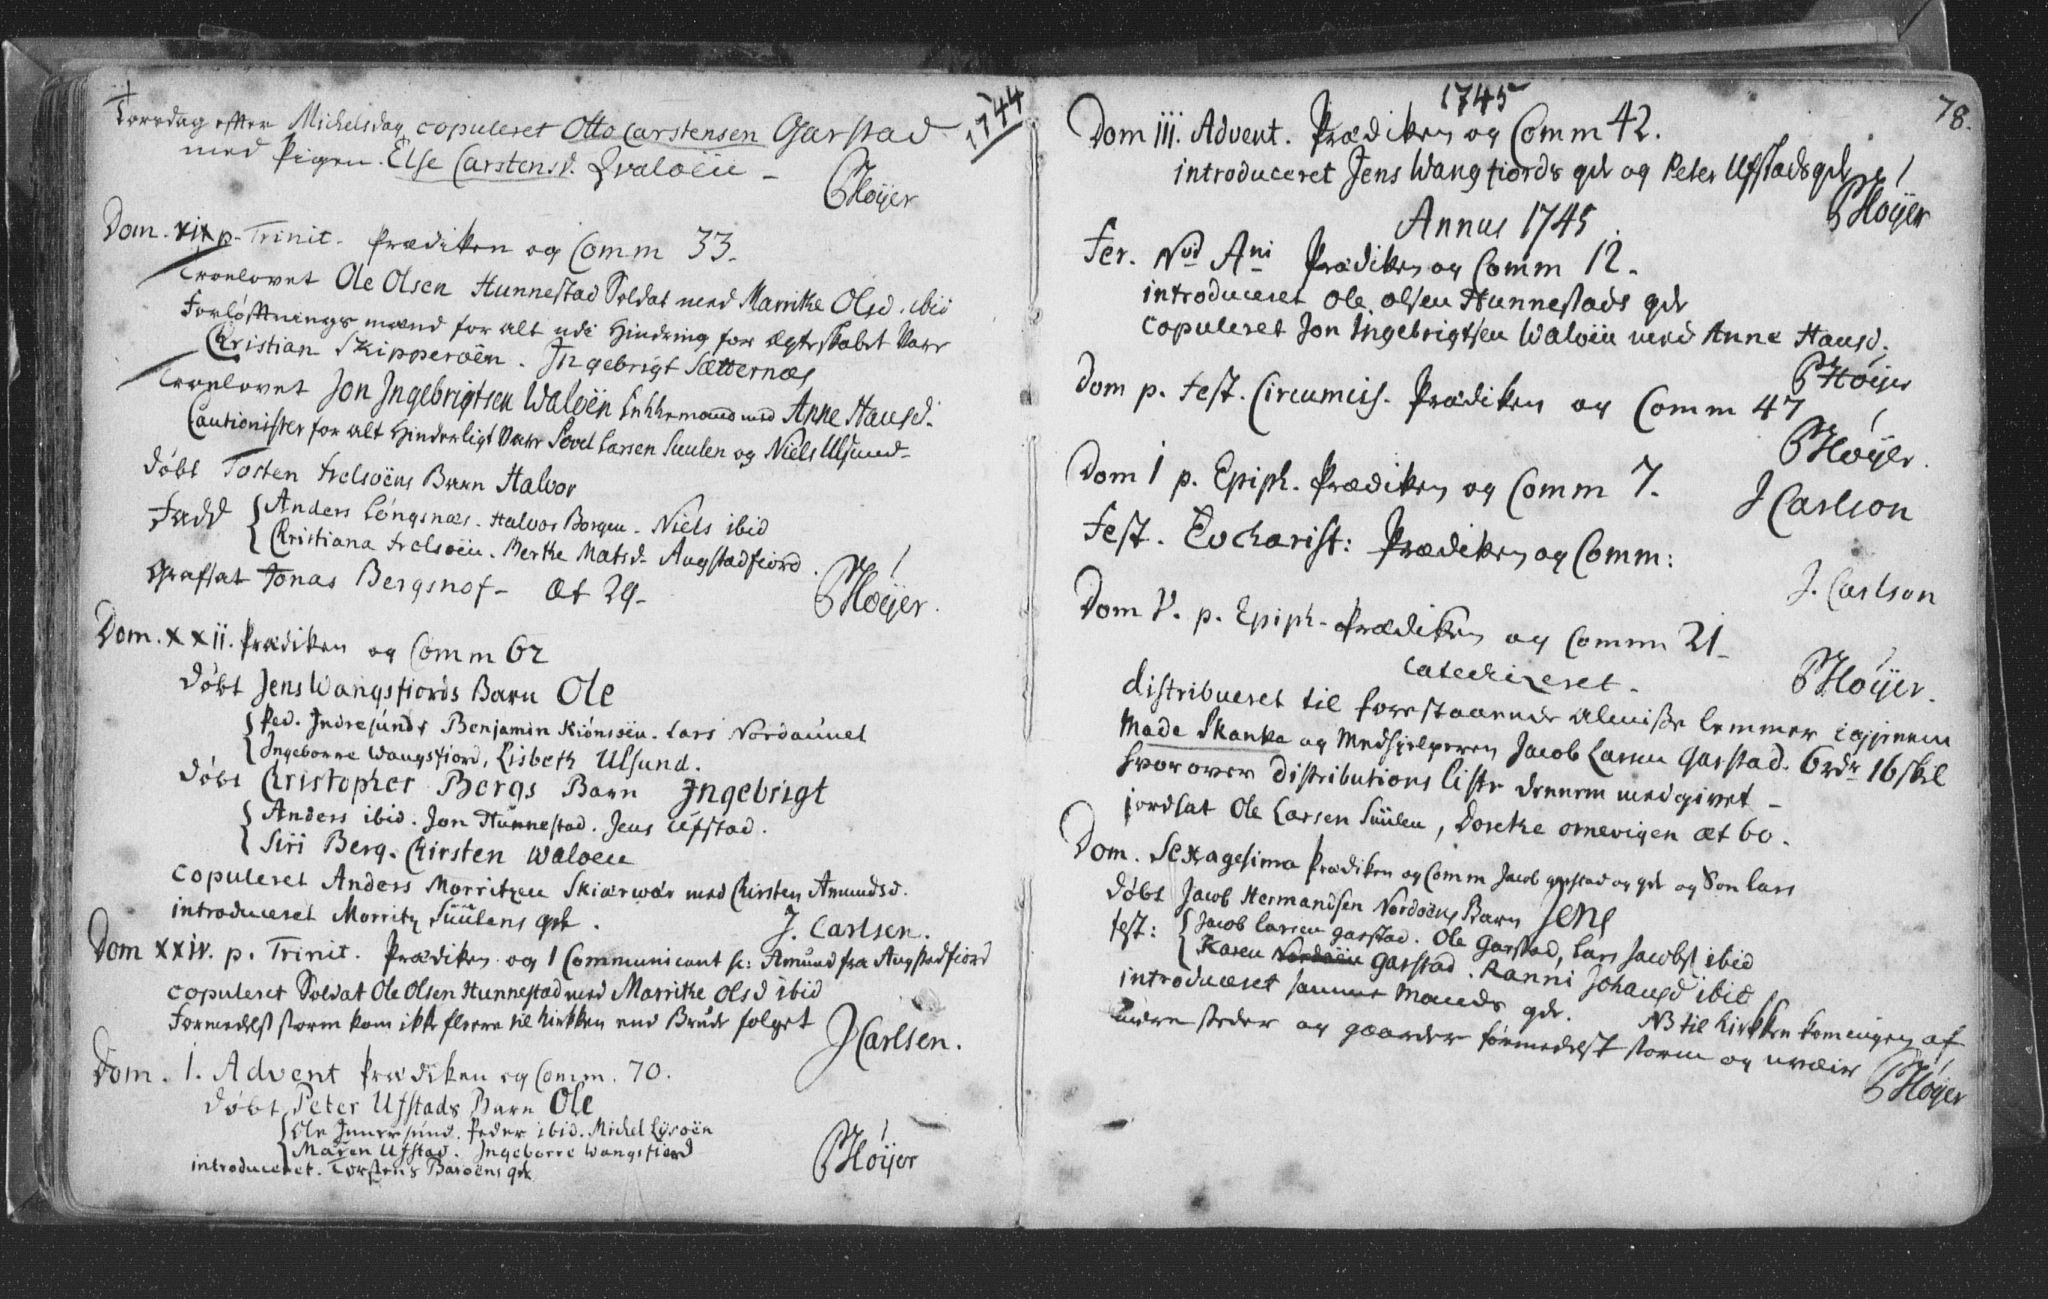 1744
Torsdag efter Michelsdag copuleret Otto Carstensen Garstad
med Pigen Else Carstensd. Qvaløen -
PHøijer
Dom. xix p. Trinit. Prædiken og Comm 33.
Troelovet Ole Olsen Hunnestad Soldat med Marrithe Olsd. ibid
Forløfftningsmænd for alt udi Hindring for Ægteskabet Vare
Christian Skipperøen. Ingebrigt Sætternæs
Troelovet Jon Ingebrigtsen Waløen Enkkemand med Anne Hansd.
Cautionister for alt Hinderligt Vare Sovel Larsen Suulen og Niels Ulsund-
døbt Tosten Frelsøens Barn Halvor
Fadd { Anders Longsnæs. Halvor Borgen. Niels ibid
Christiana Frelsøen. Berthe Matsd. Augstadfiord.
Grafsat Jonas Bergsnof- Æt 29-
PHøijer.
Dom. xxii. Prædiken og Comm 62
døbt Jens Wangsfiords Barn Ole
{ Ped. Indresunds Benjamin Kiønsøen. Lars Nordaunet
Ingeborre Wangsfiord, Lisbeth Ulsund.
døbt Christopher Bergs Barn Ingebrigt
{ Anders ibid. Jon Hunnestad. Jens Ufstad.
Siri Berg. Chirsten Waløen
copuleret Anders Morritzen Skiærvær med Chirsten Amundsd.
introduceret Morritz Suulens qde.
J. Carlsen.
Dom xxiv. p. Trinit. Prædiken og 1 Communicant sc: Amund fra Augstadfiord
copuleret Soldat Ole Olsen Hunnestad med Marrithe Olsd ibid
Formedelst storm kom ikke fleere til Kirkken end Brude folget
JCarlsen.
Dom. 1. Advent Prædiken og Comm. 70.
døbt Peter Ufstads Barn Ole
{ Ole Innersund. Peder ibid. Michel Lysøen
Maren Ufstad. Ingeborre Wangsfiord
introduceret. Torstens Barøens qde
PHøijer
1745
78.
Dom III. Advent. Prædiken og Comm 42.
introduceret Jens Wangfiords qde og Peter Ufstads qde
PHøijer
Annus 1745
Fer. Nvi Ani Prædiken og Comm 12.
introduceret Ole Olsen Hunnestads qde
copuleret Jon Ingebrigtsen Waløen med Anne Hansd.
PHøijer
Dom p. Fest. Circumcis. Prædiken og Comm 47
PHøijer.
Dom 1 p. Epiph. Prædiken og Comm 7.
JCarlson
Fest. Eucharist: Prædiken og Comm:
J. Carlson
Dom V. p. Epiph. Prædiken og Comm 21-
catechizeret.
PHøijer.
distribueret til forestaaende almisse lemmer igjennem
Made Skanke og Medhjelperen Jacob Larsen Garstad. 6 rdr 16 skil
hvorover distributions liste dennem medgivet -
jordsat Ole Larsen Suulen, Dorthe Ornevigen æt 60.
Dom. Sexagesima Prædiken og Comm Jacob Garstad og qde og Søn Lars
døbt Jacob Hermandsen Nordøens Barn Jens
test: { Jacob Larsen Garstad. Ole Garstad, Lars Jacobs: ibid
Karen Nordøen Garstad. Ranni Johansd ibid
introduceret samme Mands qde.
NB til Kirkken kom ingen af
andre steder og gaarder formedelst storm og uvæir
PHøijer